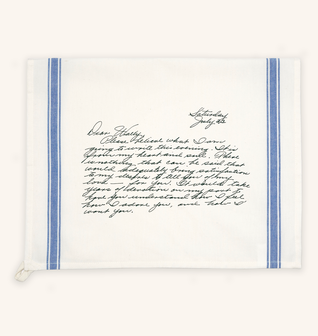 Saturday
July 22
Dear Hally,
Please believe what I am
going to write this evening. It is
from my heart and soul. There
is nothing that can be said that
would adequately bring satisfaction
to my desire to tell you of my
love — for you. It would take
years of devotion on my part to
have you understand how I feel
how I adore you, and how I
want you.